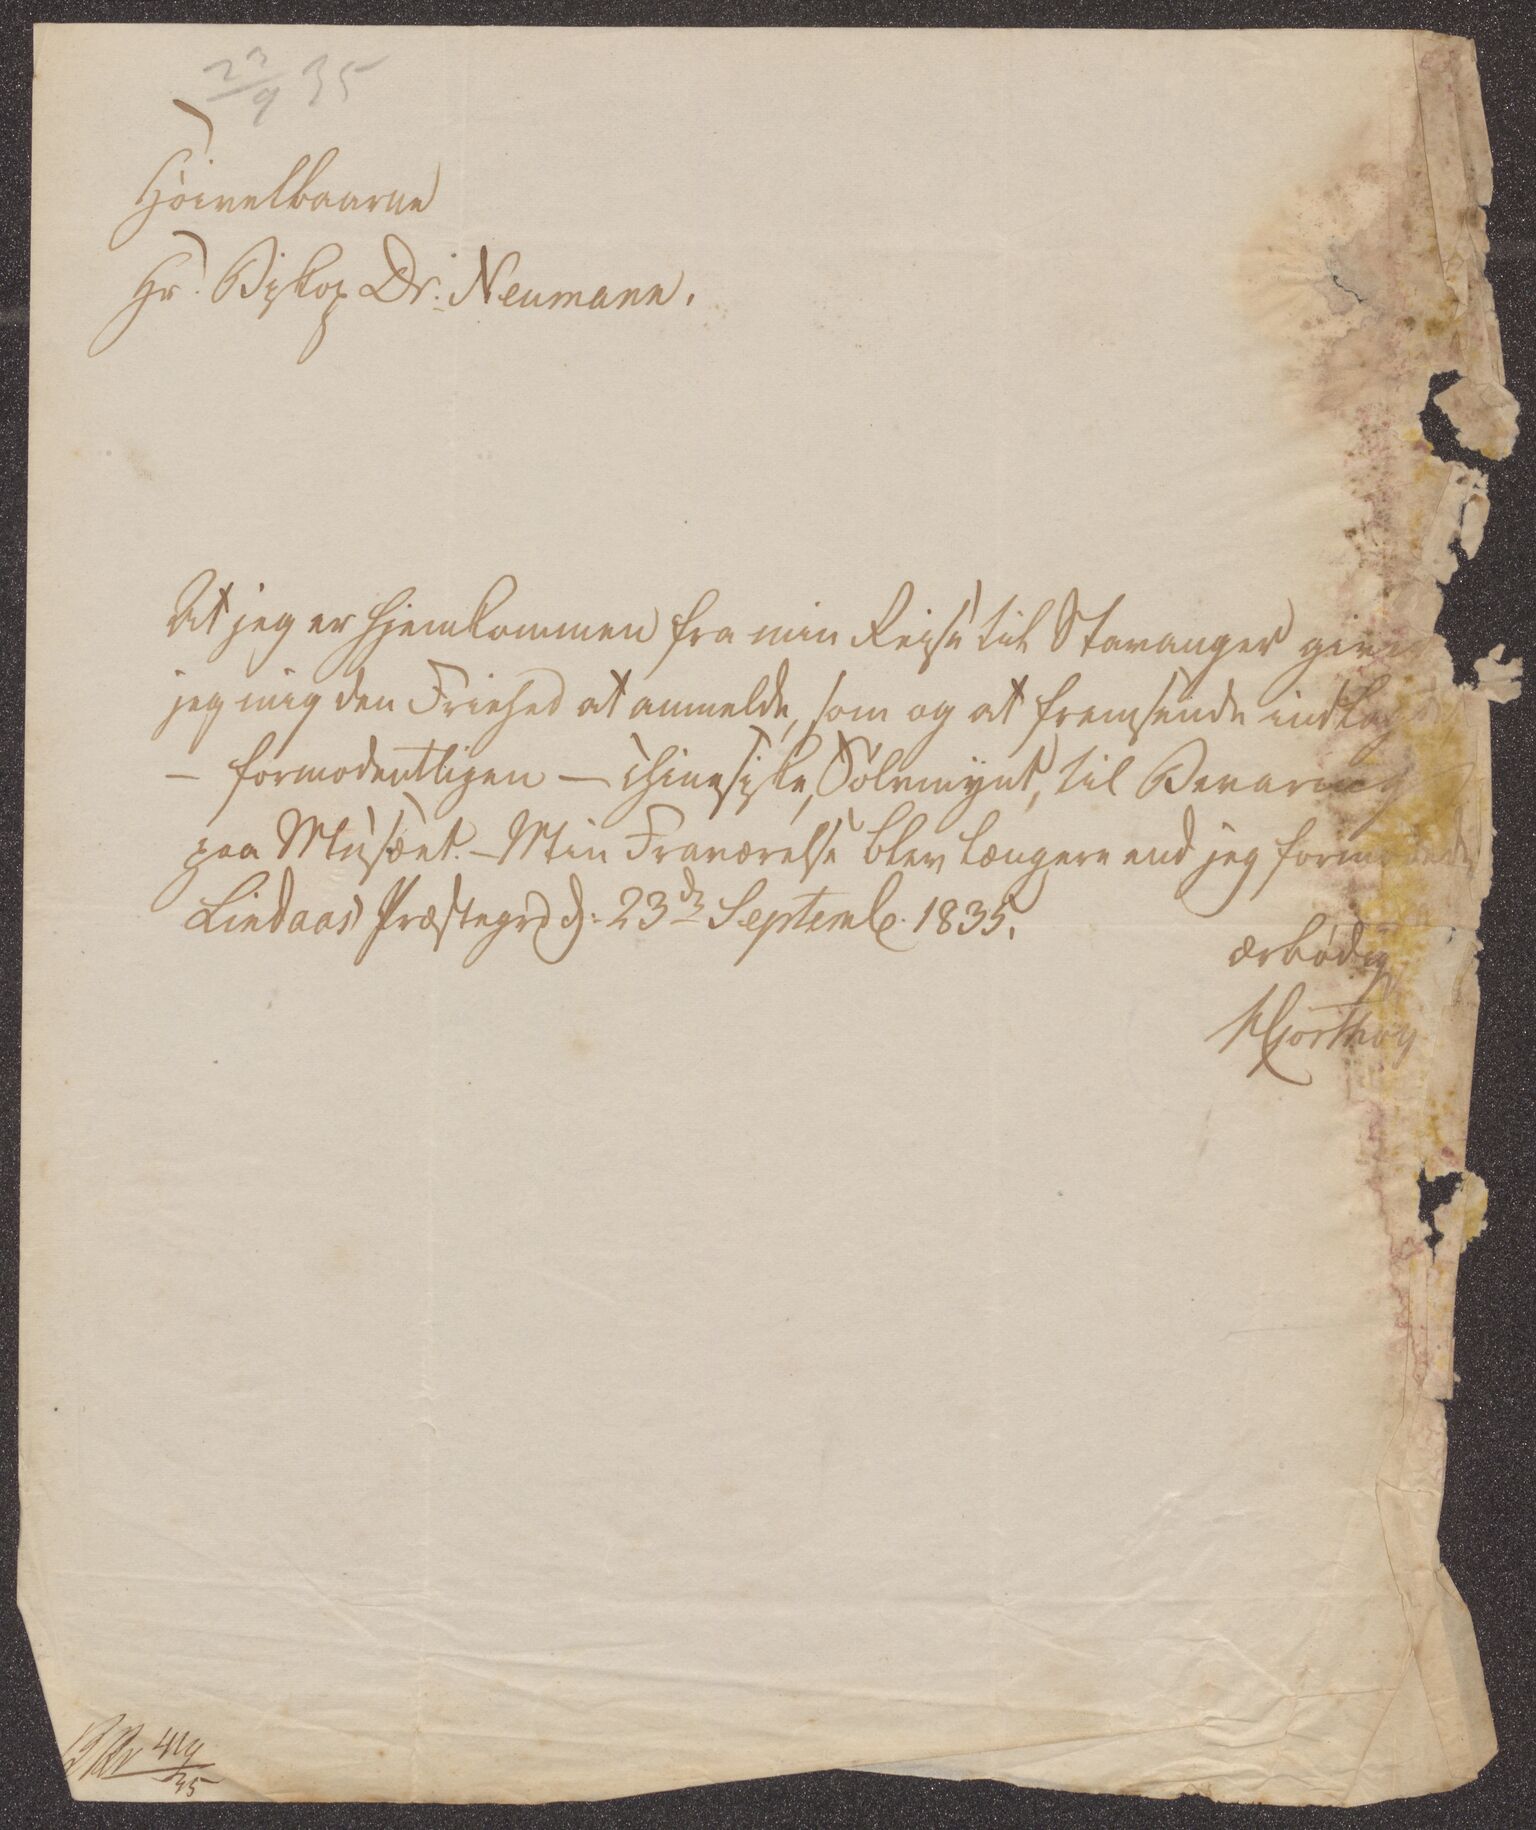 23/9 35
Höivelbaarne
Hr. Biskop Dr. Neumann.
At jeg er hjemkommen fra min Reise til Stavanger giver
jeg mig den Friehed at anmelde, som og at fremsende indlagde
— formodentligen — chinesiske, Sølvmynt, til Bevaring
paa Musæet. – Min Fraværelse blev længere end jeg formodede
Lindaas Præstegrd d: 23de Septembr. 1835.
ærbødig
Hjorthøy
419/35